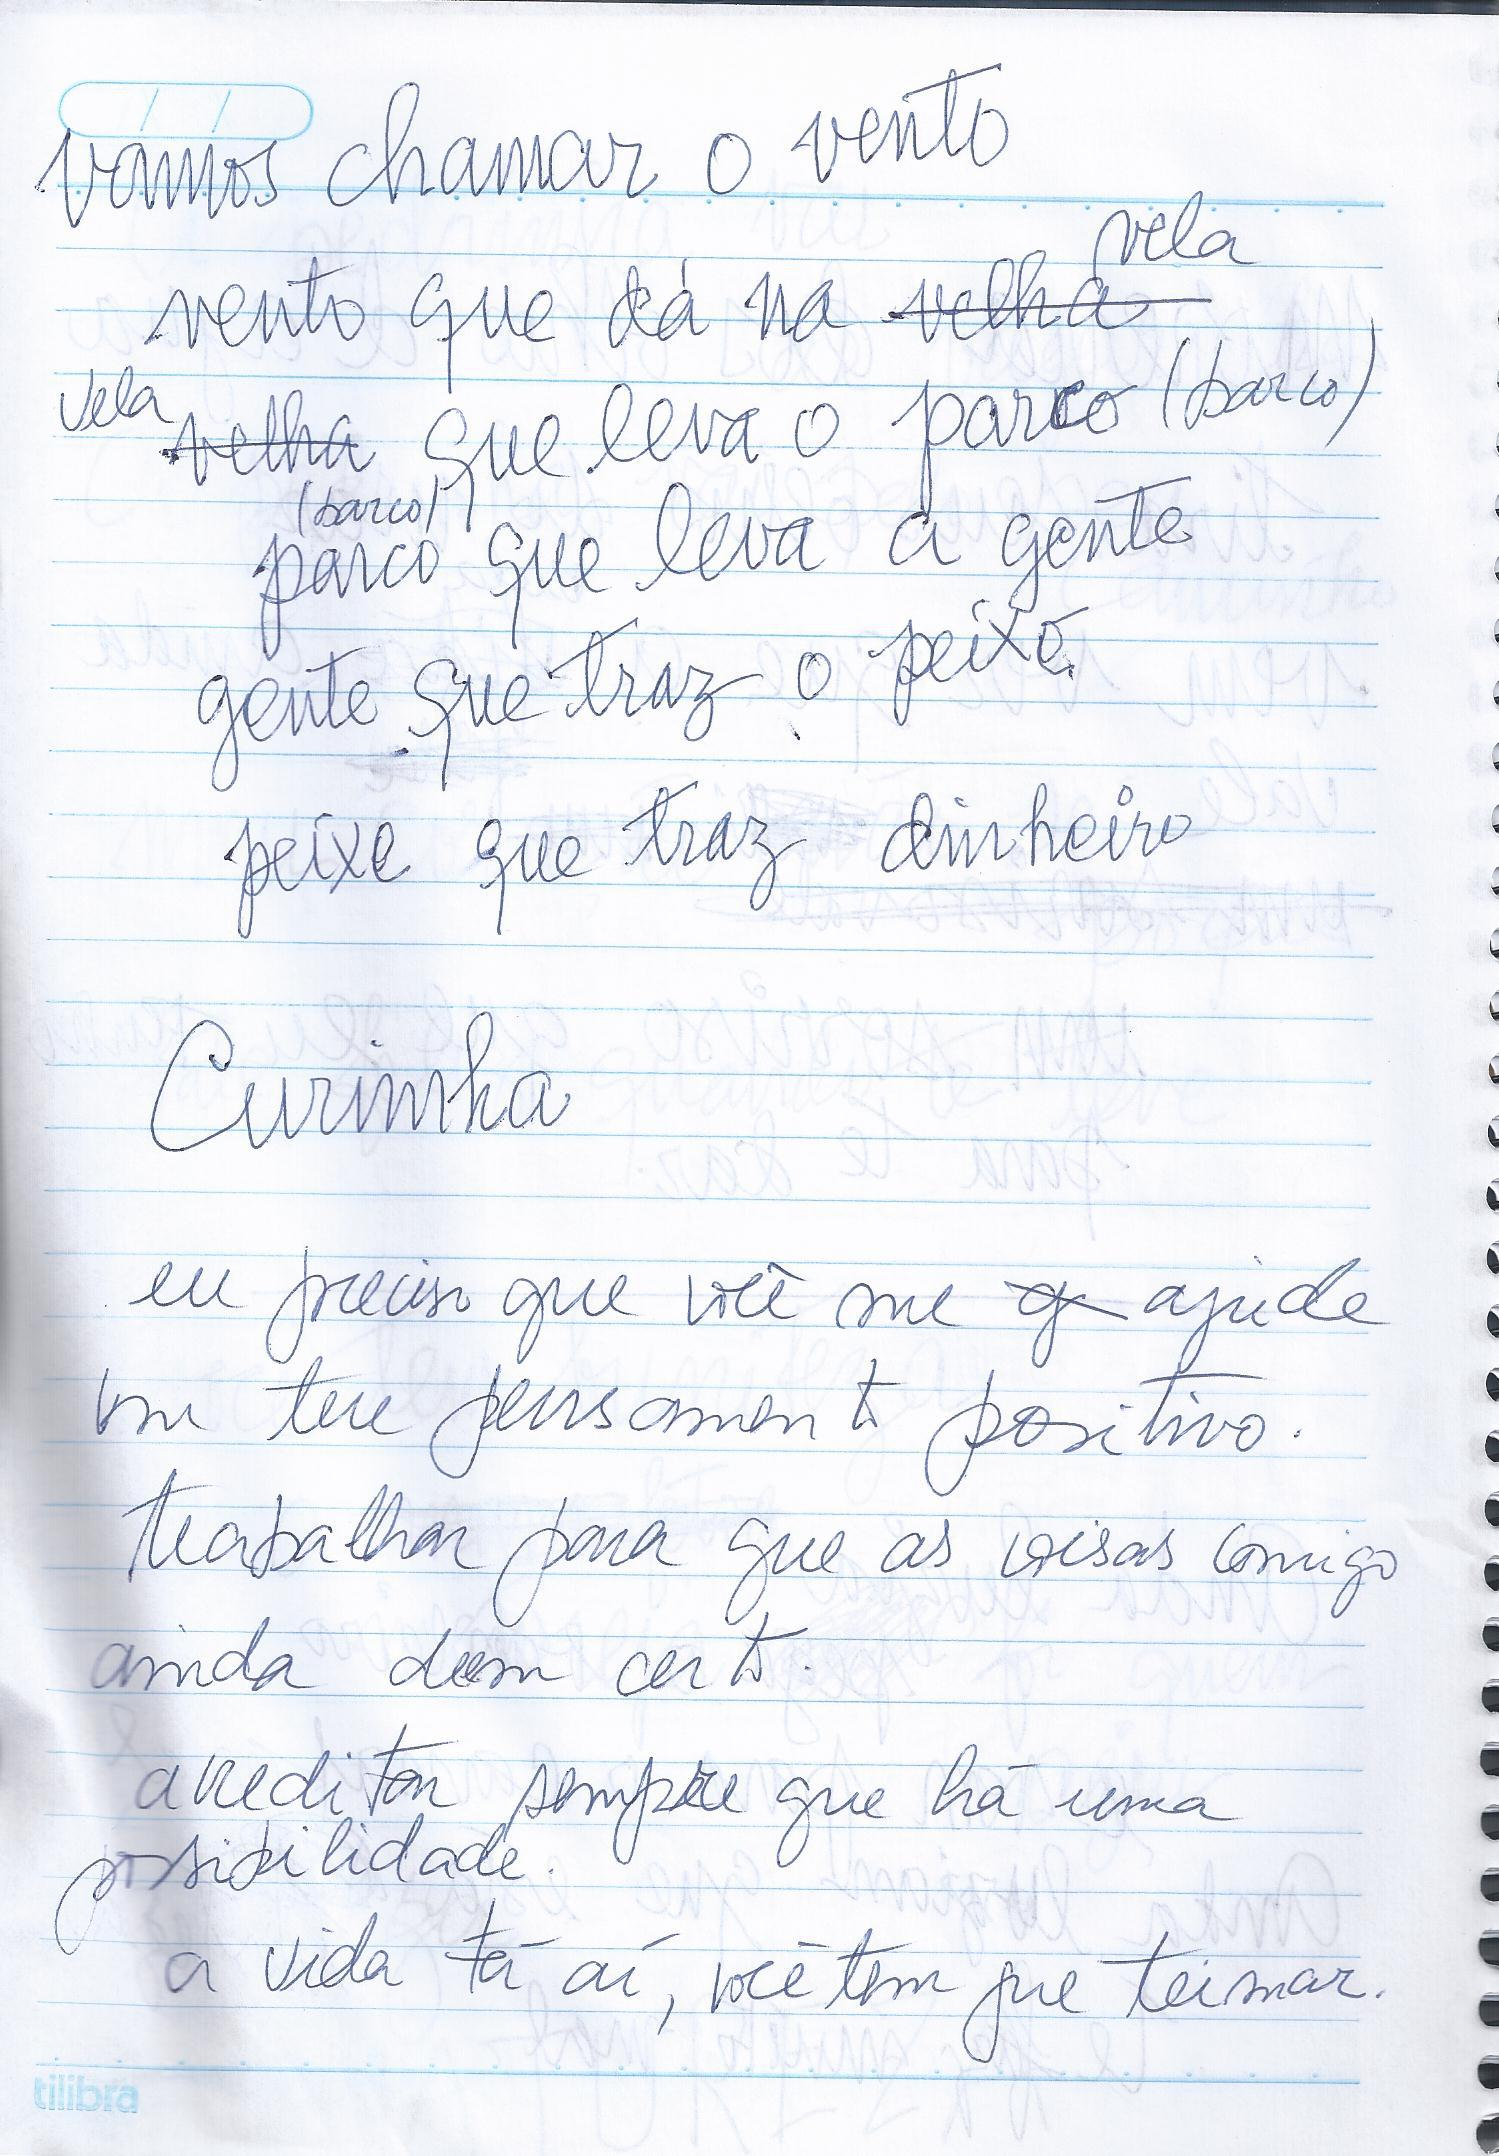 vamos chamar o vento
vela
vento que dá na velha
vela velha que leva o parco (barco)
(barco)
parco que leva a gente
gente que traz o peixe
peixe que traz dinheiro
Curimha
eu preciso que você me q ajude
com teu pensamento positivo.
trabalhar para que as coisas comigo
ainda deem certo.
acreditar sempre que há uma
possibilidade.
a vida tá aí, você tem que teimar.
tilibra